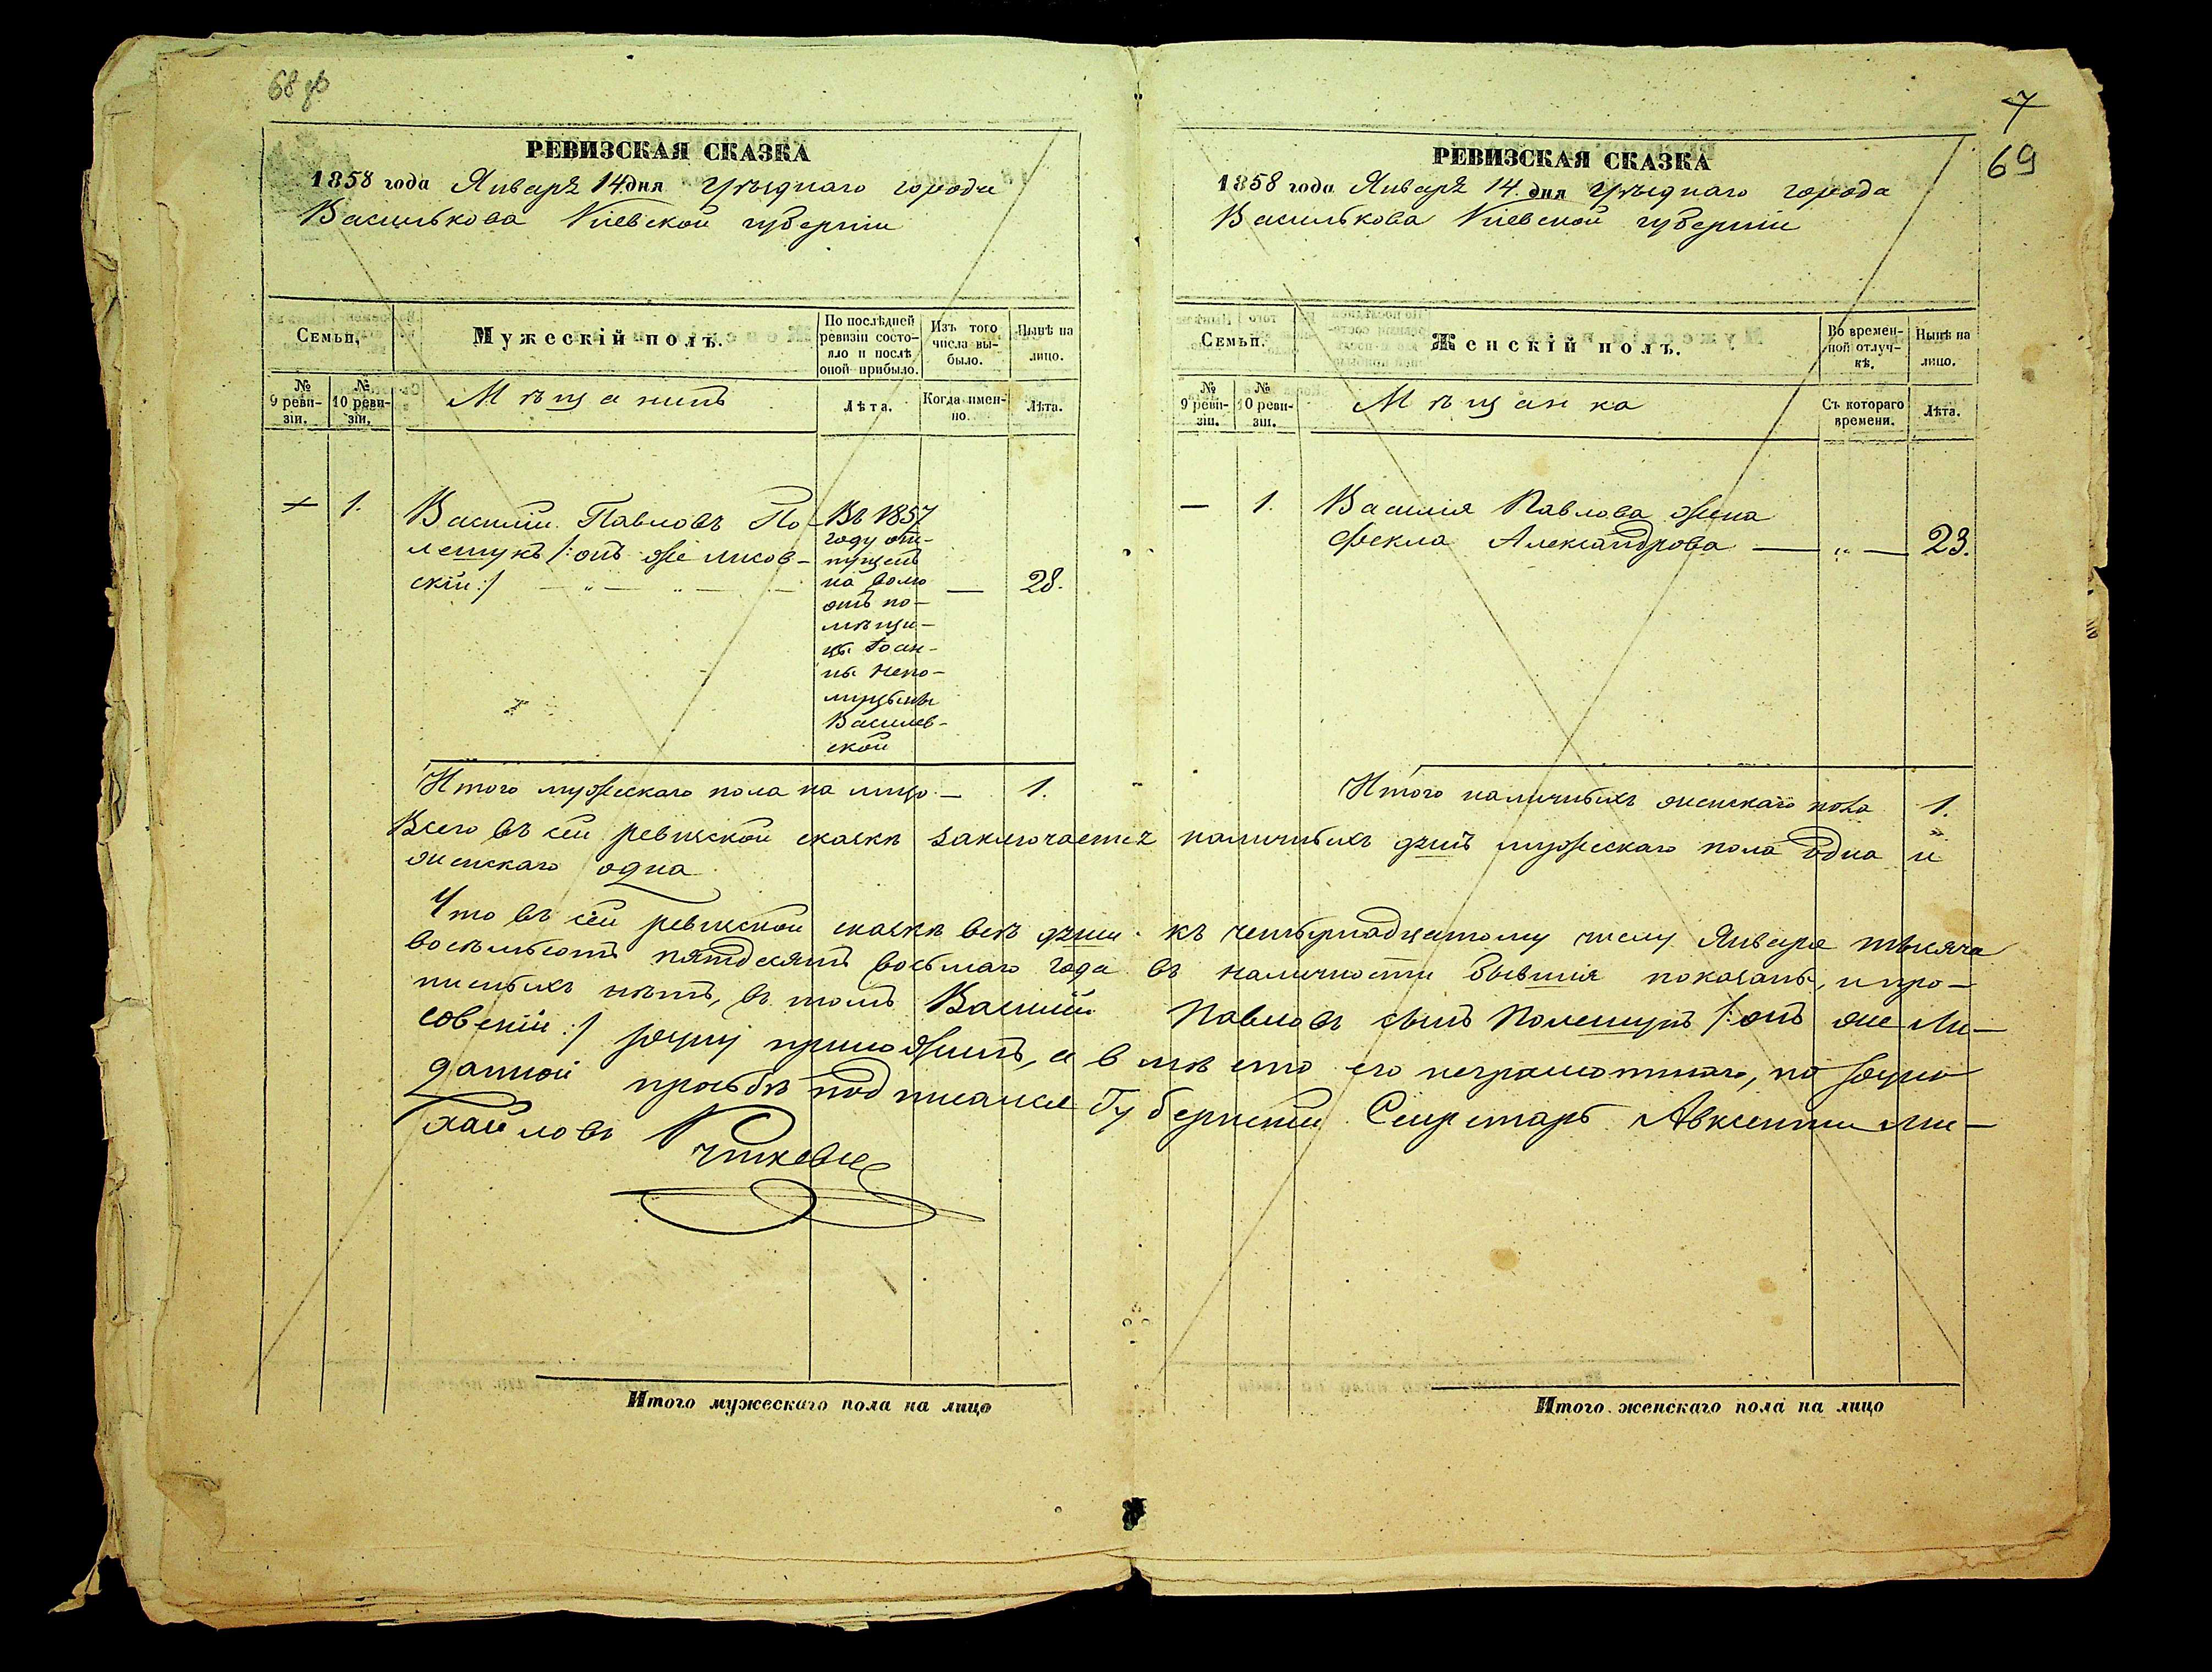 68 об
РЕВИЗСКАЯ СКАЗКА
1858 года Января 14 дня Уѣзднаго города
Василькова Кіевской губерніи
Семьи.
Мужескій полъ.
По послѣдней ревизіи состояло и послѣ оной прибыло.
Изъ того числа выбыло.
Нынѣ на лицо.
№ 9 ревизіи.
№ 10 ревизіи.
Мѣщанинъ
Лѣта.
Когда именно.
Лѣта.
1.
Василій Павловъ По-
лещукъ /: онъ же Лисов-
скій :/
Въ 1857
году от-
пущенъ
на волю
отъ по-
мѣщи-
цы Іоан-
ны Непо-
муцыны
Василев-
ской
—
28.
Итого мужескаго пола на лицо — 1.
7
69
РЕВИЗСКАЯ СКАЗКА
1858 года Января 14 дня Уѣзднаго города
Василькова Кіевской губерніи
Семьи.
Женскій полъ.
Во временной отлучкѣ.
Нынѣ на лицо.
№ 9 ревизіи.
№ 10 ревизіи.
Мѣщанка
Съ котораго времени.
Лѣта.
— 1.
Василія Павлова жена
Фекла Александрова — „ — 23.
Итого наличныхъ женскаго пола 1.
Всего въ сей ревизской сказкѣ заключается наличныхъ душъ мужескаго пола одна и
женскаго одна
Что въ сей ревизской сказкѣ всѣ души къ четырнадцатому числу Января тысяча
восемьсотъ пятдесятъ восьмаго года въ наличности бывшія показаны, и про-
писныхъ нѣтъ, въ томъ Василій Павловъ сынъ Полещукъ /: онъ же Ли-
совскій :/ руку приложилъ, а вмѣсто его неграмотнаго, по руко
данной прозьбѣ подписался Губернскій Секретарь Авксентій Ми-
хайловъ
Итого мужескаго пола на лицо
Итого женскаго пола на лицо